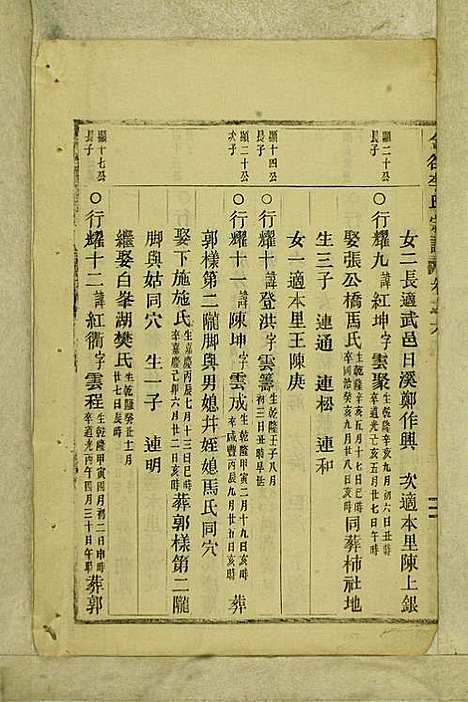 李氏宗譜
女二長適武邑日溪鄭作興 次適本里陳上銀
顯二十公
長子
○行耀九諱紅坤字雲聚生乾隆辛亥九月初六日丑時
卒道光己亥五月廿七日午時
娶張公橋馬氏生乾隆辛亥五月十七日戌時
卒同治癸亥九月廿八日亥時同葬柿社地
生三子 連通 連松 連和
女一適本里王陳庚
顯十四公
長子
○行耀十諱登洪字雲籌生乾隆壬子八月
初三日丑時早卒
顯二十公
次子
○行耀十一諱陳坤字雲成生乾隆甲寅二月十九日亥時
卒咸豐丙辰九月廿五日亥時 葬
郭樣第二隴脚與男媳幷姪媳馬氏同穴
娶下施施氏生嘉慶丙辰七月十三日巳時
卒嘉慶己卯六月廿二日亥時葬郭樣第二隴
脚與姑同穴 生一子 連明
繼娶白峯湖樊氏生乾隆癸丑十二月
廿七日辰時
顯十七公
長子
○行耀十二諱紅衢字雲程生乾隆甲寅四月初二日申時
卒道光丙午四月三十日午時葬郭